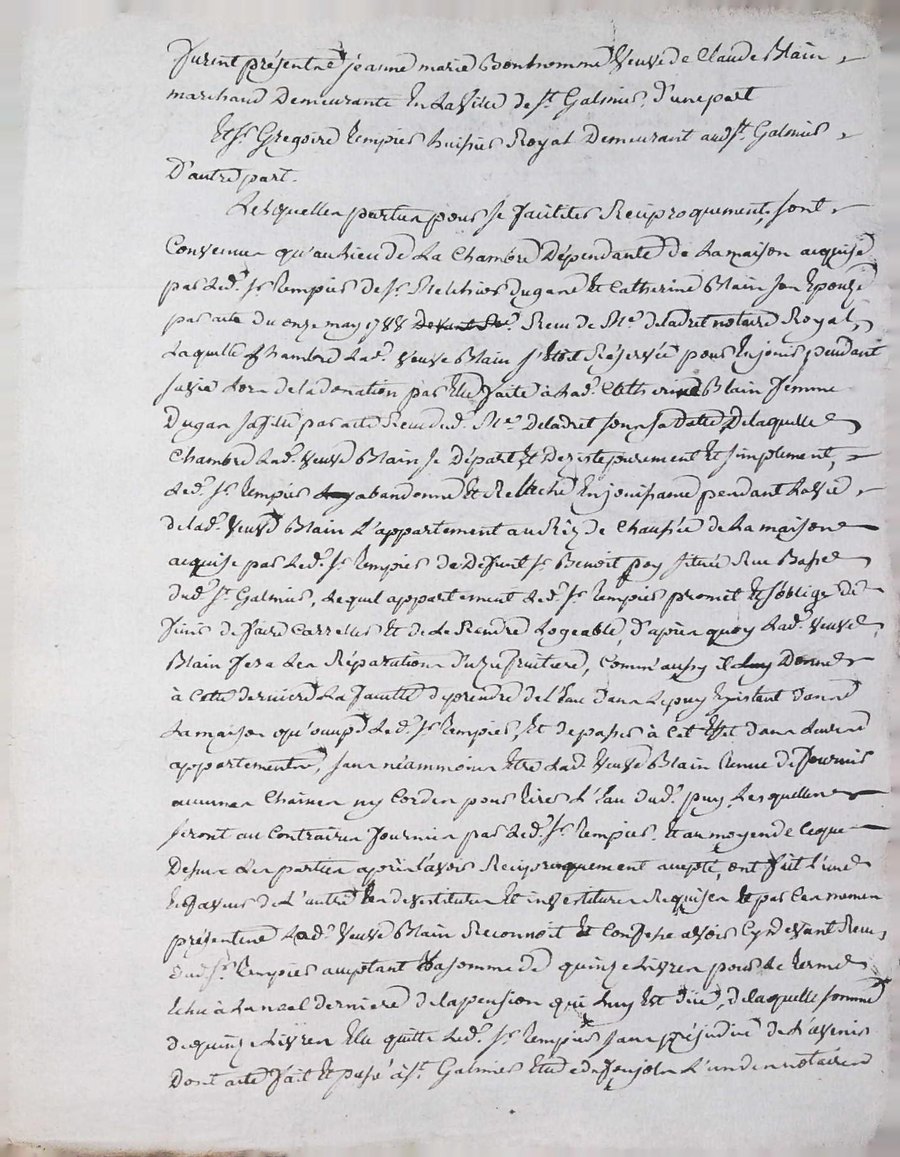 furent présente jeanne marie Bonhomme Veuve de Claude Blain
marchand Demeurante En La Ville de St Galmier, d'une part
Et Sr Gregoire Tempier huissier Royal Demeurant aud St Galmier
D'autre part.
Lesquelles parties pour se faciliter Reciproquement, sont
Convenues qu'au Lieu de La Chambre Dépendante de La maison acquise
par Led. Sr Tempier de Sr Melchior Dugane Et Catherine Blain Son Epouse
par acte du onze may 1788 Recu de Me deladret notaire Royal,
Laquelle Chambre Lad. Veuve Blain s'étoit Réservée pour En jouir pendant
sa vie Lors de la donation par Elle faite à Lad. Catherine Blain femme
Dugan sa fille par acte Recu dud. Me Deladret sous sa Datte, De laquelle
Chambre Lad. Veuve Blain se Départ Et Deziste purement Et simplement,
Led. Sr Tempier abandonne Et Relache En jouissance pendant La vie
de lad. Veuve Blain L'appartement au Réz de Chaussée de La maison
acquise par Led. Sr Tempier de Defunt Sr Benoit poy située Rue Basse
dud. St Galmier, Lequel appartement Led. Sr Tempier promet Et s'oblige de
finir de faire Carreller Et de Le Rendre Logeable, d'après quoy Lad. Veuve
Blain fera Les Réparations D'uzufruitiere, Comm'aussy il Donne
à Cette derniere La faculté de prendre de L'Eau dans Le puy Existant dans
La maison qu'occupe Led. Sr Tempier, Et de passer à Cet Effet dans Leurs
appartements, sans néammoins Etre Lad. Veuve Blain tenue de fournir
aucunes Chaines ny Cordes pour tirer L'Eau dud. puy, Lesquelles
seront au Contraire fournies par Led. Sr Tempier. Et au moyen de Ce que
Dessus Les parties après L'avoir Reciproquement accepté, ont fait L'une
En faveur de L'autre Les devestitures Et investitures Requises Et par Ces memes
présentes Lad. Veuve Blain Reconnoit Et Confesse avoir Cy devant Recu
dud. Sr Tempier comptant La somme de quinze Livres pour Le terme
Echu à La noel derniere de la pension qui Luy Est düe, de laquelle somme
de quinze Livres Elle quitte Led. Sr Tempier sans préjudice de L'avenir
Dont acte fait Et passé à St Galmier Etude de Ponjols L'un des notaires